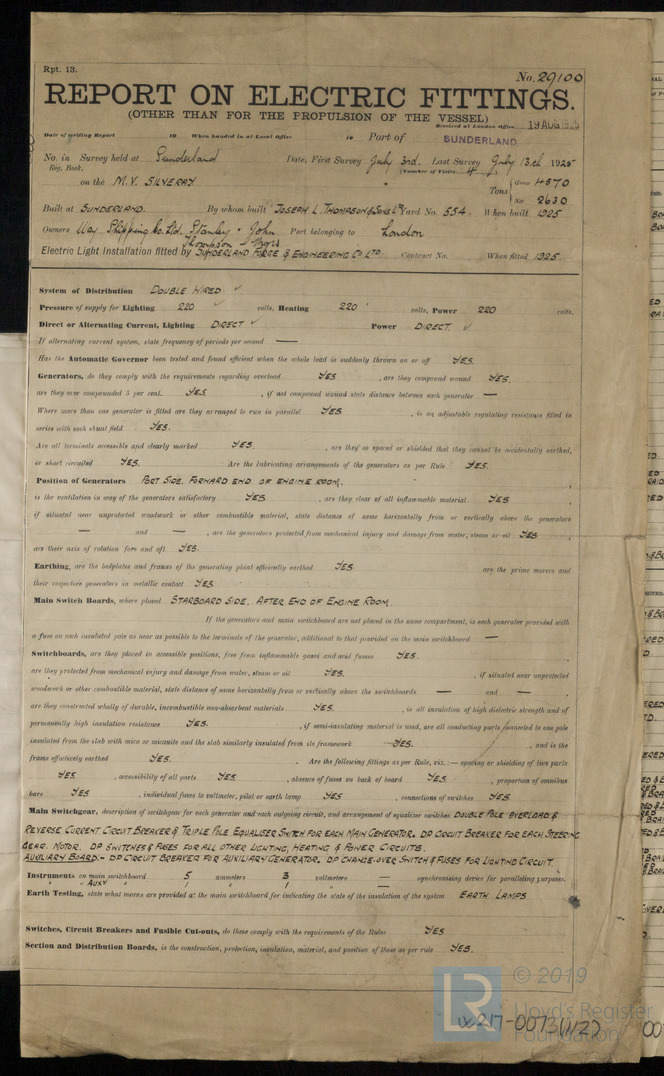 Rpt. 13.
No. 29100
REPORT ON ELECTRIC FITTINGS.
(OTHER THAN FOR THE PROPULSION OF THE VESSEL)
Received at London Office 19 AUG 1925
Date of writing Report 19 When handed in at Local Office 19 Port of SUNDERLAND
No. in Survey held at Sunderland Date, First Survey July 3rd. Last Survey July 13th 1925
Reg. Book. (Number of Visits 4)
on the M.V. SILVERAY Tons { Gross 4370
Net 2630
Built at SUNDERLAND. By whom built JOSEPH L. THOMPSON & SONS Ltd Yard No. 554. When built 1925
Owners Way Shipping Co. Ltd. Stanley & John Port belonging to London
Thompson Mgrs
Electric Light Installation fitted by SUNDERLAND FORGE & ENGINEERING CO LTD. Contract No. When fitted 1925.
System of Distribution DOUBLE WIRED ✓
Pressure of supply for Lighting 220 ✓ volts, Heating 220 volts, Power 220 volts.
Direct or Alternating Current, Lighting DIRECT ✓ Power DIRECT. ✓
If alternating current system, state frequency of periods per second —
Has the Automatic Governor been tested and found efficient when the whole load is suddenly thrown on or off YES.
Generators, do they comply with the requirements regarding overload YES , are they compound wound YES.
are they over compounded 5 per cent. YES. , if not compound wound state distance between each generator —
Where more than one generator is fitted are they arranged to run in parallel YES , is an adjustable regulating resistance fitted in
series with each shunt field YES.
Are all terminals accessible and clearly marked YES. , are they so spaced or shielded that they cannot be accidentally earthed,
or short circuited YES. Are the lubricating arrangements of the generators as per Rule YES.
Position of Generators PORT SIDE. FORWARD END OF ENGINE ROOM.
is the ventilation in way of the generators satisfactory YES , are they clear of all inflammable material YES
if situated near unprotected woodwork or other combustible material, state distance of same horizontally from or vertically above the generators
— and — , are the generators protected from mechanical injury and damage from water, steam or oil YES
are their axis of rotation fore and aft YES.
Earthing, are the bedplates and frames of the generating plant efficiently earthed YES are the prime movers and
their respective generators in metallic contact YES
Main Switch Boards, where placed STARBOARD SIDE. AFTER END OF ENGINE ROOM.
If the generators and main switchboard are not placed in the same compartment, is each generator provided with
a fuse on each insulated pole as near as possible to the terminals of the generator, additional to that provided on the main switchboard —
Switchboards, are they placed in accessible positions, free from inflammable gases and acid fumes YES.
are they protected from mechanical injury and damage from water, steam or oil YES. , if situated near unprotected
woodwork or other combustible material, state distance of same horizontally from or vertically above the switchboards — and —
are they constructed wholly of durable, incombustible non-absorbent materials YES. , is all insulation of high dielectric strength and of
permanently high insulation resistance YES. , if semi-insulating material is used, are all conducting parts connected to one pole
insulated from the slab with mica or micanite and the slab similarly insulated from its framework YES. , and is the
frame effectively earthed YES. Are the following fittings as per Rule, viz.:— spacing or shielding of live parts
YES , accessibility of all parts YES , absence of fuses on back of board YES , proportion of omnibus
bars YES , individual fuses to voltmeter, pilot or earth lamp YES , connections of switches YES.
Main Switchgear, description of switchgear for each generator and each outgoing circuit, and arrangement of equalizer switches DOUBLE POLE OVERLOAD &
REVERSE CURRENT CIRCUIT BREAKER & TRIPLE POLE EQUALISER SWITCH FOR EACH MAIN GENERATOR. DP CIRCUIT BREAKER FOR EACH STEERING
GEAR. MOTOR. DP SWITCHES & FUSES FOR ALL OTHER LIGHTING, HEATING & POWER CIRCUITS.
AUXILIARY BOARD:- DP CIRCUIT BREAKER FOR AUXILIARY GENERATOR. DP CHANGE-OVER SWITCH & FUSES FOR LIGHTING CIRCUIT.
Instruments on main switchboard 5 ammeters 3 voltmeters — synchronising device for paralleling purposes.
" " AUXY " 1 " 1 " —
Earth Testing, state what means are provided at the main switchboard for indicating the state of the insulation of the system EARTH LAMPS
Switches, Circuit Breakers and Fusible Cut-outs, do these comply with the requirements of the Rules YES
Section and Distribution Boards, is the construction, protection, insulation, material, and position of these as per rule YES.
© 2019
LR Lloyd's Register
Foundation
W217-0073(1/2)